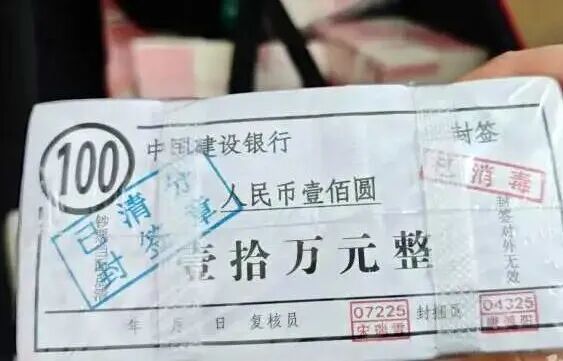 100
中国建设银行
封签
已消毒
人民币壹佰圆
已清分
封签
壹拾万元整
封签对外无效
年 月 日 复核员
07225
封捆员
04325